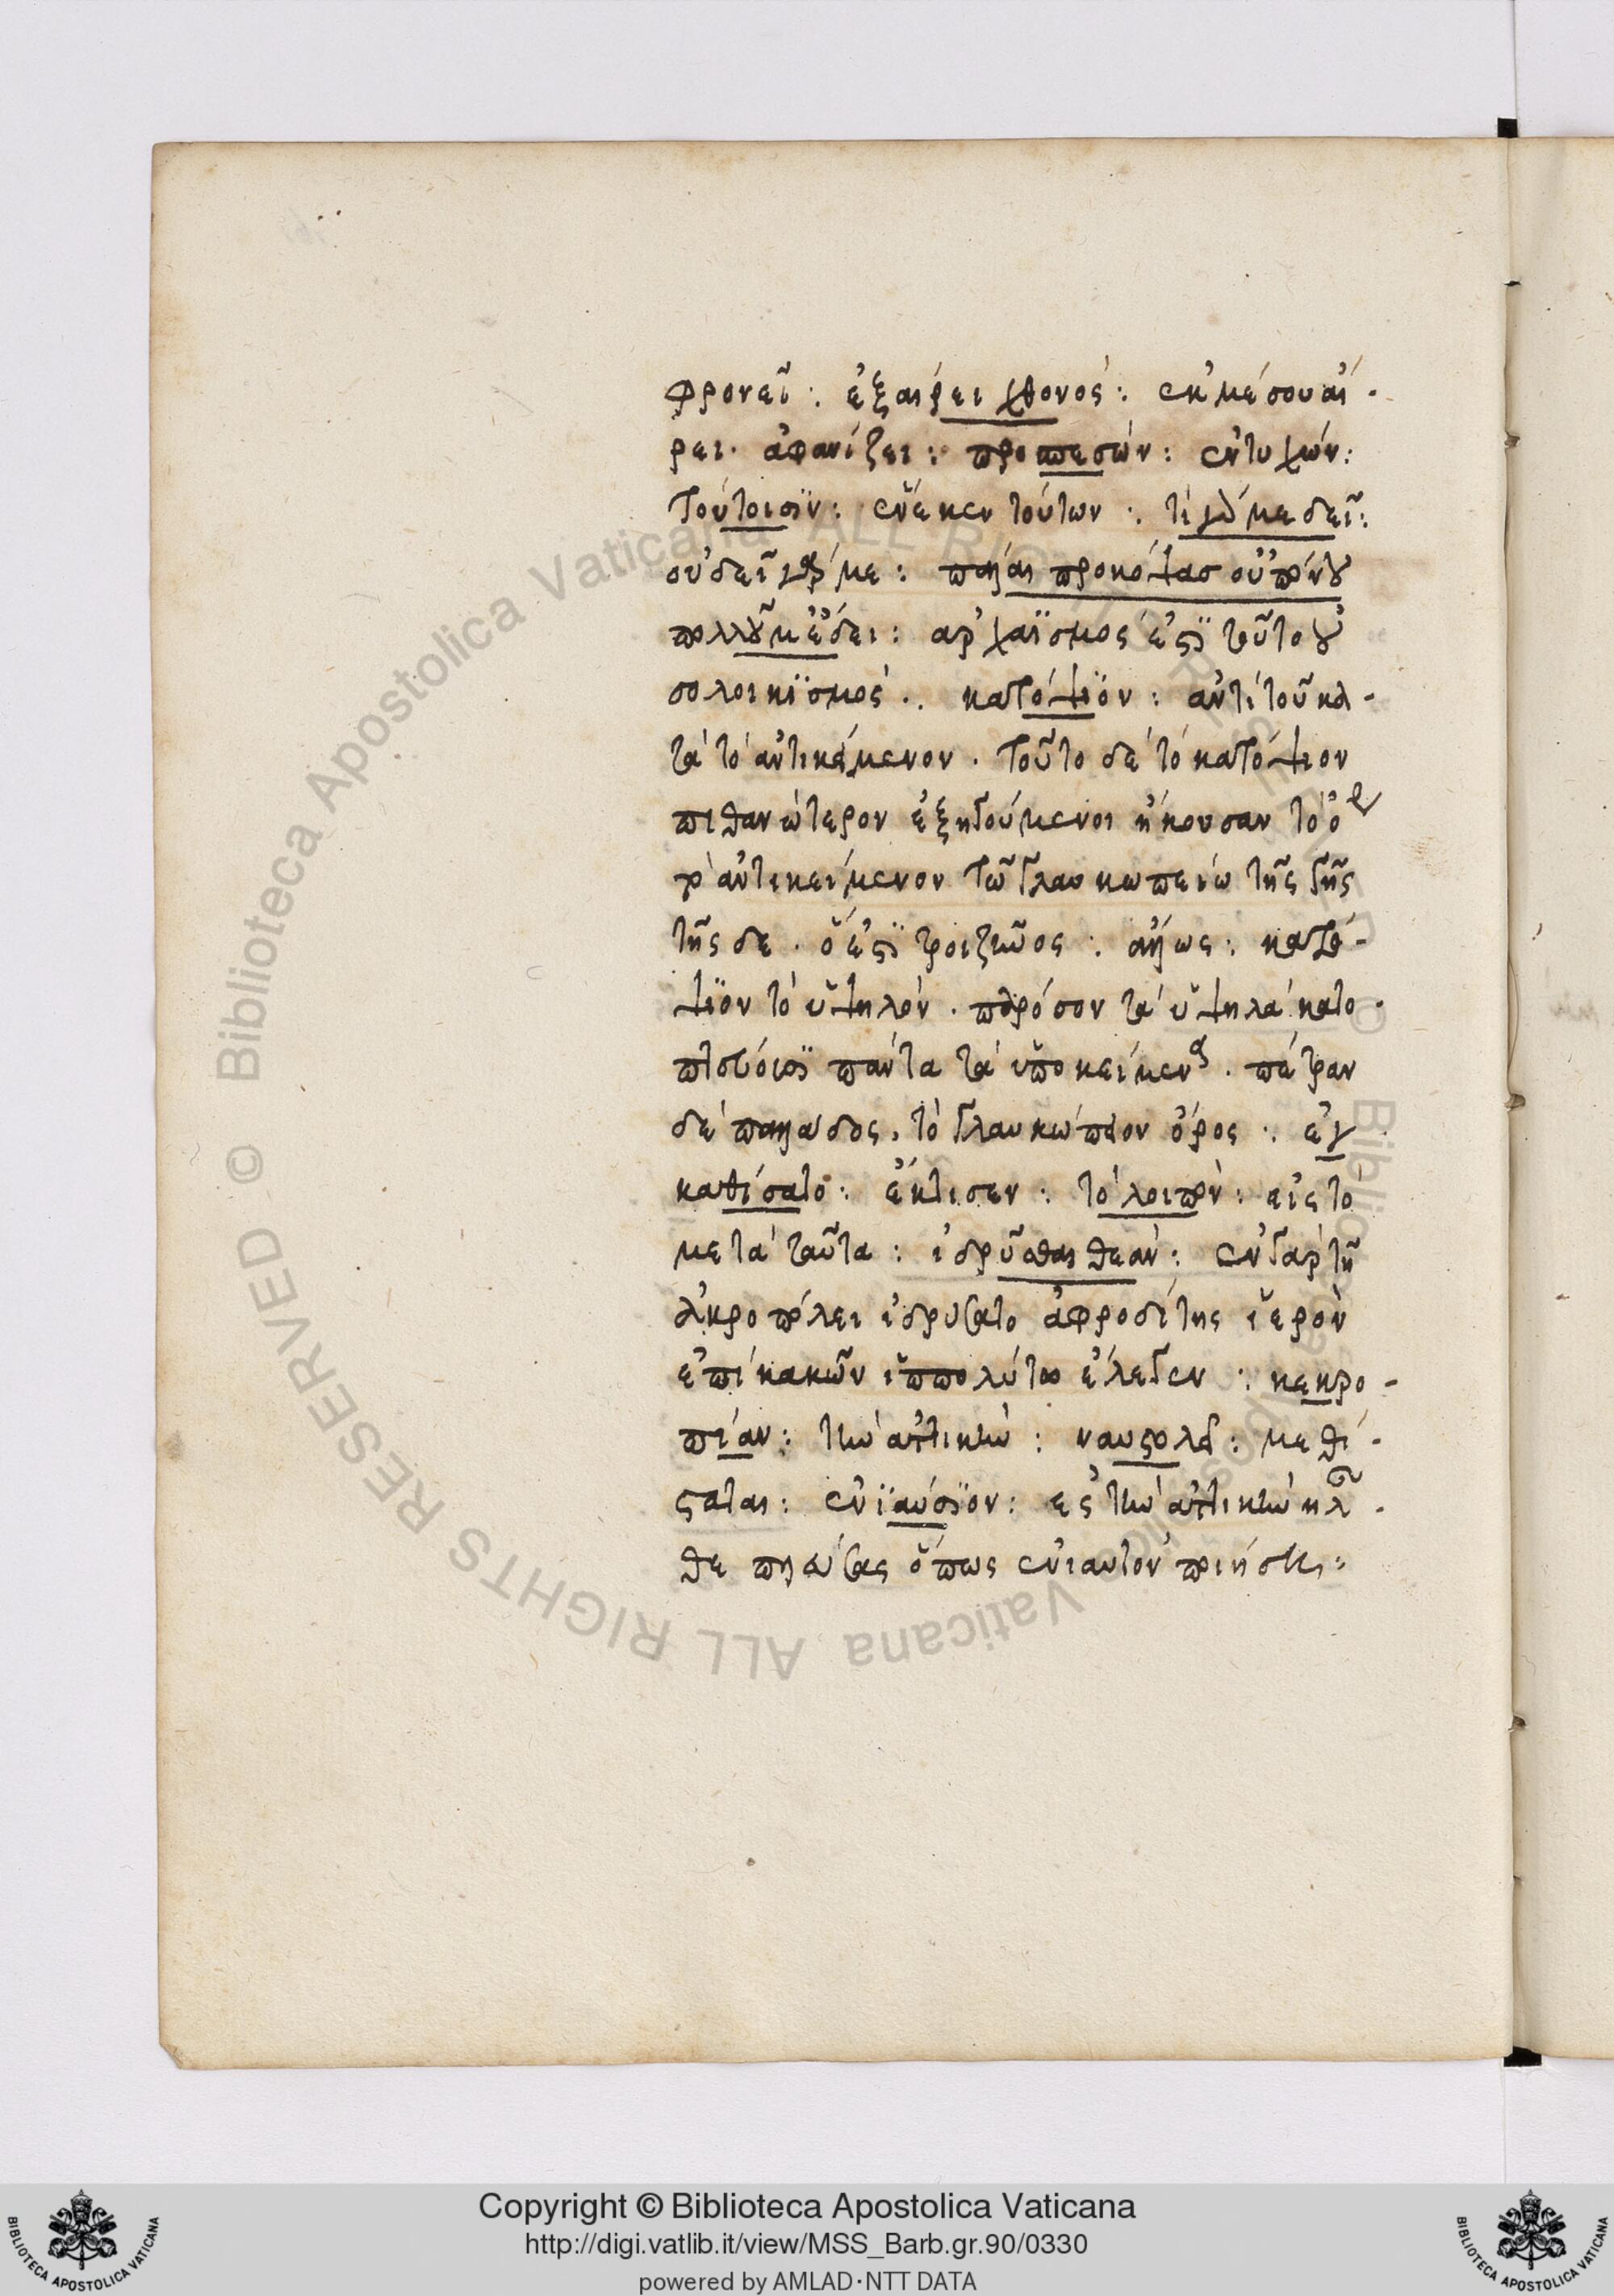 φρονεῖ : ἐξαιρει χθονός : ἐκ μέσου αἴ-
ρει. ἀφανίζει : προπεσών : ἐντυχών :
τούτοισϊν : ἕνεκεν τούτων : τί γάρ με δεῖ :
οὐδεῖ γάρ με : πάλαι προκόψασ οὐ πόνου
πολλοῦ μ' ἔδει : ἀρχαϊσμος ἐστϊ τοῦτο οὐ
σολοικϊσμός : κατόψϊον : ἀντὶ τοῦ κα-
τὰ τὸ ἀντικείμενον . Τοῦτο δὲ τὸ κατόψιον
πιθανώτερον ἐξηγούμενοι ἤκουσαν τὸ ὄ
ρ ἀντικείμενον τῶ γλαυκωπειω τῆς γῆς
τῆς δε . ὅ ἐστϊ τροιζῆνος : ἄλλως : κατό-
ψϊον τὸ ὑψηλόν . παρόσον τὰ ὑψηλὰ κατο-
πτεύουσϊ πάντα τὰ ὑποκείμενα . πέτραν
δὲ παλλάδος, τὸ γλαυκώπιον ὄρος : ἐγ
καθίσατο : ἔκτισεν : τὸ λοιπὸν : εἰς τὸ
μετὰ ταῦτα : ἱδρῦσθαι θεάν : ἐν γὰρ τῆ
ἀκροπόλει ἱδρύσατο ἀφροδίτης ἱερὸν
ἐπὶ κακῶν ἱππολύτω ἔλεγεν : κεκρο-
πίαν : τὴν ἀττικὴν : ναυστολεῖ : μεθί-
σταται : ἐνϊαύσϊον : ἐς τὴν ἀττικὴν ἦλ
θε πηλεύσας ὅπως ἐνιαυτὸν ποιήση :
Copyright © Biblioteca Apostolica Vaticana
http://digi.vatlib.it/view/MSS_Barb.gr.90/0330
powered by AMLAD·NTT DATA